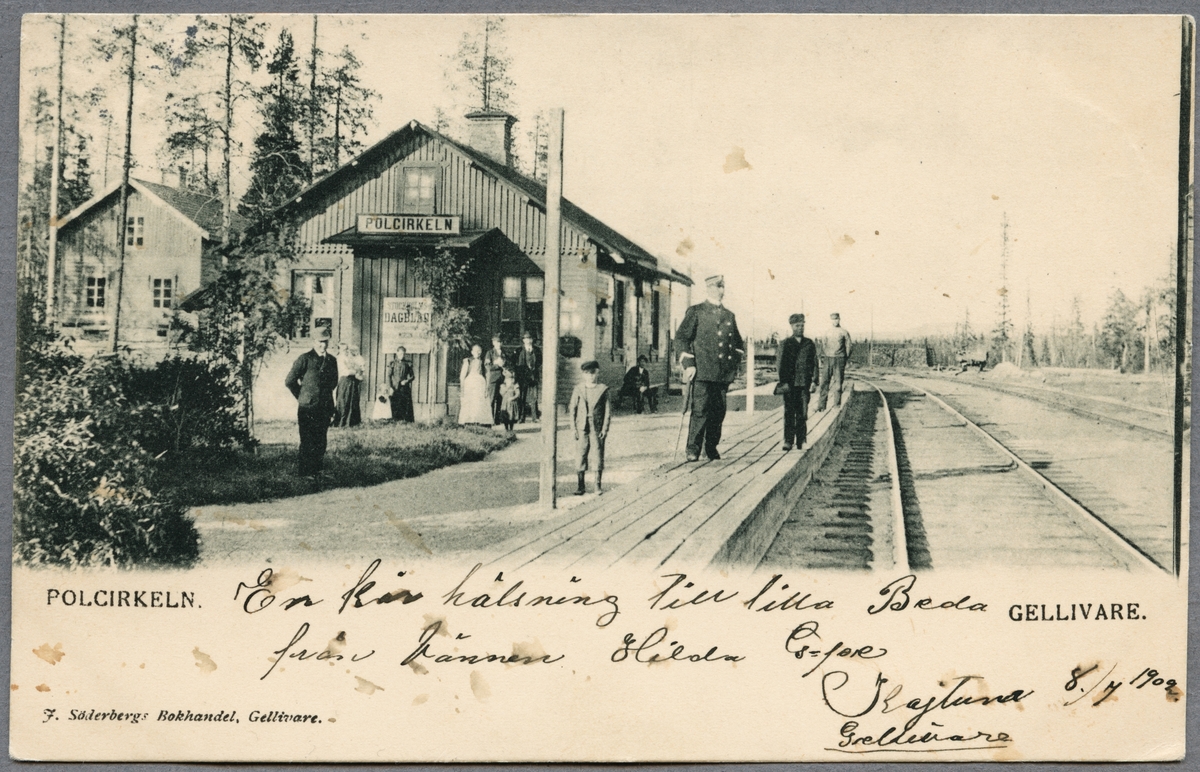 POLCIRKELN
STOCKHOLMS
DAGBLAD
POLCIRKELN.
En kär hälsning till lilla Beda
GELLIVARE.
från Vännen Hilda
8/7 1902
Gellivare
J. Söderbergs Bokhandel, Gellivare.